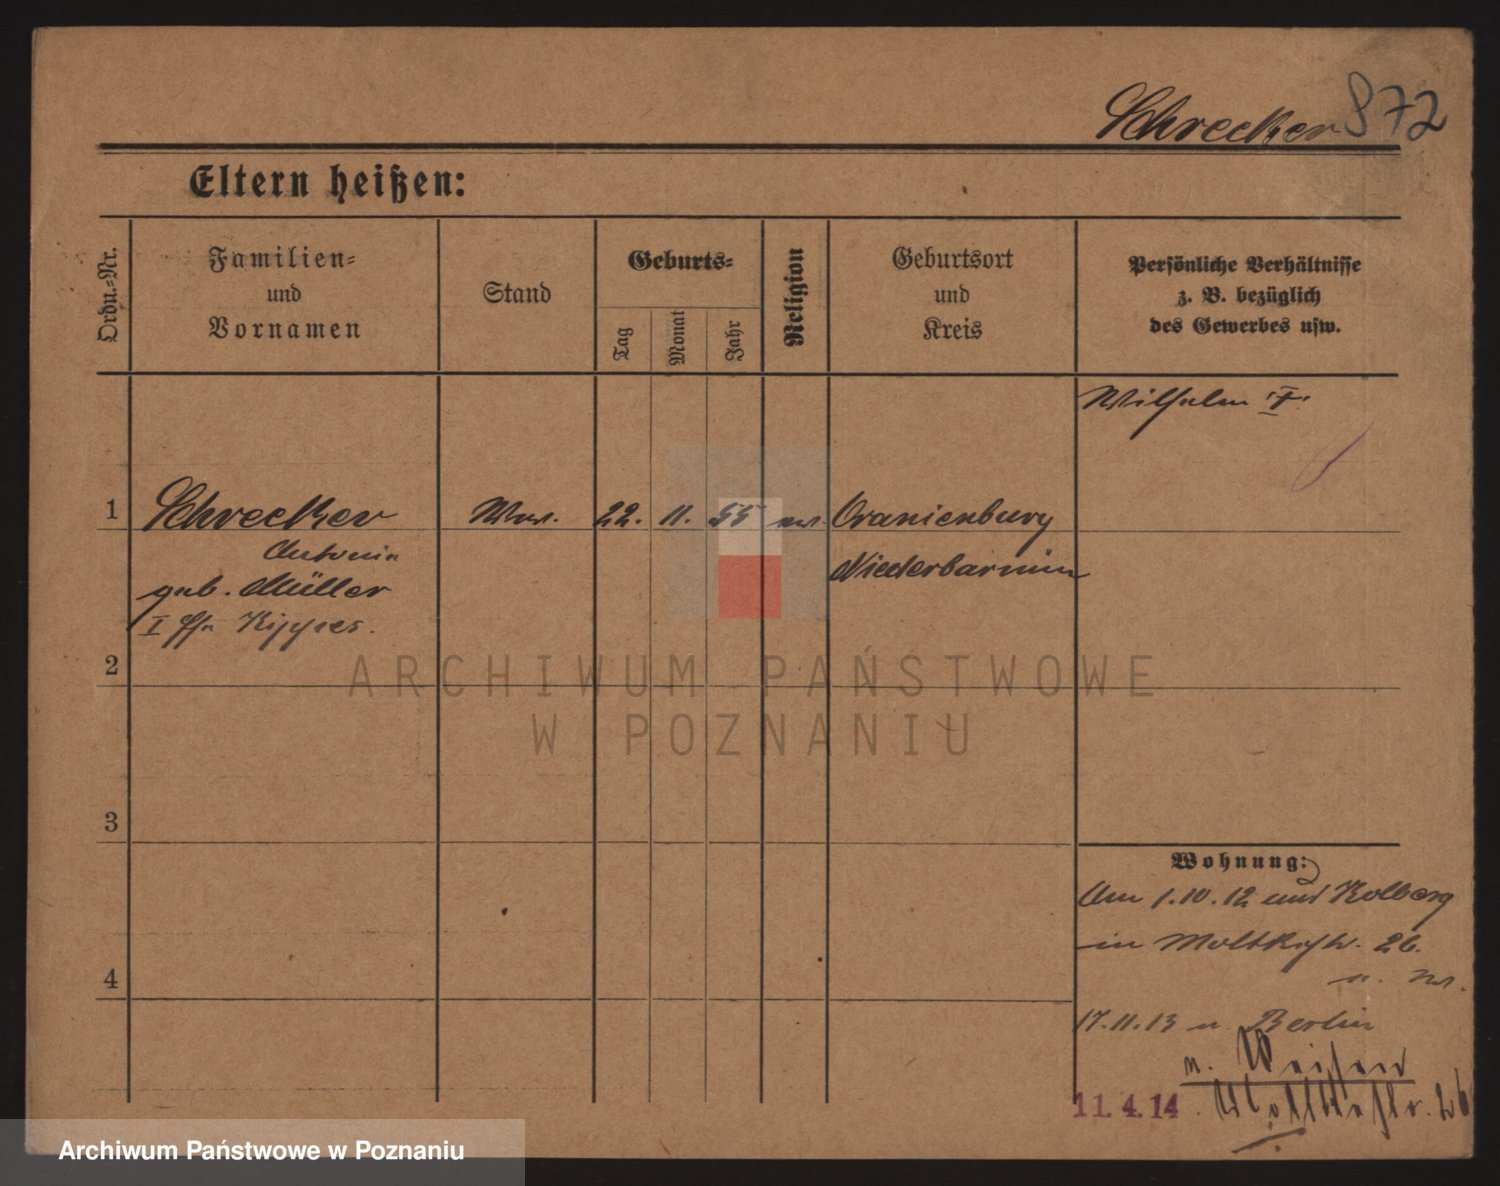 Schrecker 872
Eltern heißen:
Ordn.-Nr.
Familien-
und
Vornamen
Stand
Geburts-
Tag
Monat
Jahr
Religion
Geburtsort
und
Kreis
Persönliche Verhältnisse
z. B. bezüglich
des Gewerbes usw.
Wilhelm
1 Schrecker Ww. 22. 11. 55 ev. Oranienburg
Antonie Niederbarnim
geb. Müller
I
2
ARCHIWUM PAŃSTWOWE
W POZNANIU
3
Wohnung:
Am 1.10.12 Kolberg
in Moltkestr. 26.
4
17.11.13 n. Berlin
n.
11.4.14
Archiwum Państwowe w Poznaniu